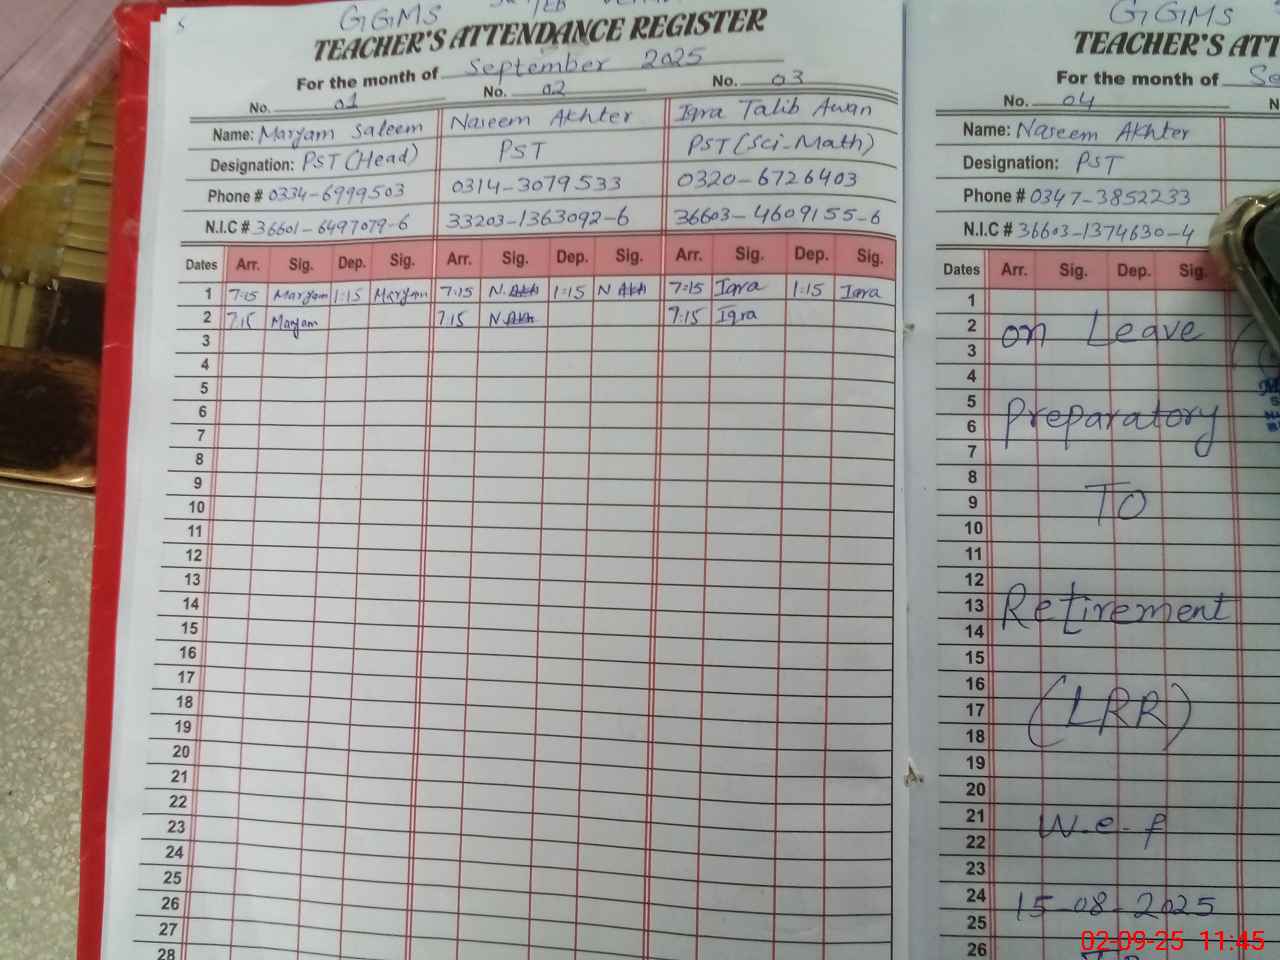 GGMS
TEACHER'S ATTENDANCE REGISTER
For the month of September 2025
No. 01 No. 02 No. 03
Name: Maryam Saleem Naseem Akhter Iqra Talib Awan
Designation: PST (Head) PST PST (Sci-Math)
Phone # 0334-6999503 0314-3079533 0320-6726403
N.I.C # 36601-6497079-6 33203-1363092-6 36603-4609155-6
Dates Arr. Sig. Dep. Sig. Arr. Sig. Dep. Sig. Arr. Sig. Dep. Sig.
1 7:15 Maryam 1:15 Maryam 7:15 N.Akh 1:15 N Akh 7:15 Iqra 1:15 Iqra
2 7:15 Maryam 7:15 N.Akh 7:15 Iqra
3
4
5
6
7
8
9
10
11
12
13
14
15
16
17
18
19
20
21
22
23
24
25
26
27
28
GGMS
TEACHER'S ATT
For the month of Se
No. 04
Name: Naseem Akhter
Designation: PST
Phone # 0347-3852233
N.I.C # 36603-1374630-4
Dates Arr. Sig. Dep. Sig.
1
2 on Leave
3
4
5
6 Preparatory
7
8
9 TO
10
11
12
13 Retirement
14
15
16
17 (LRR)
18
19
20
21 W.e.f
22
23
24 15-08-2025
25
26 To
02-09-25 11:45